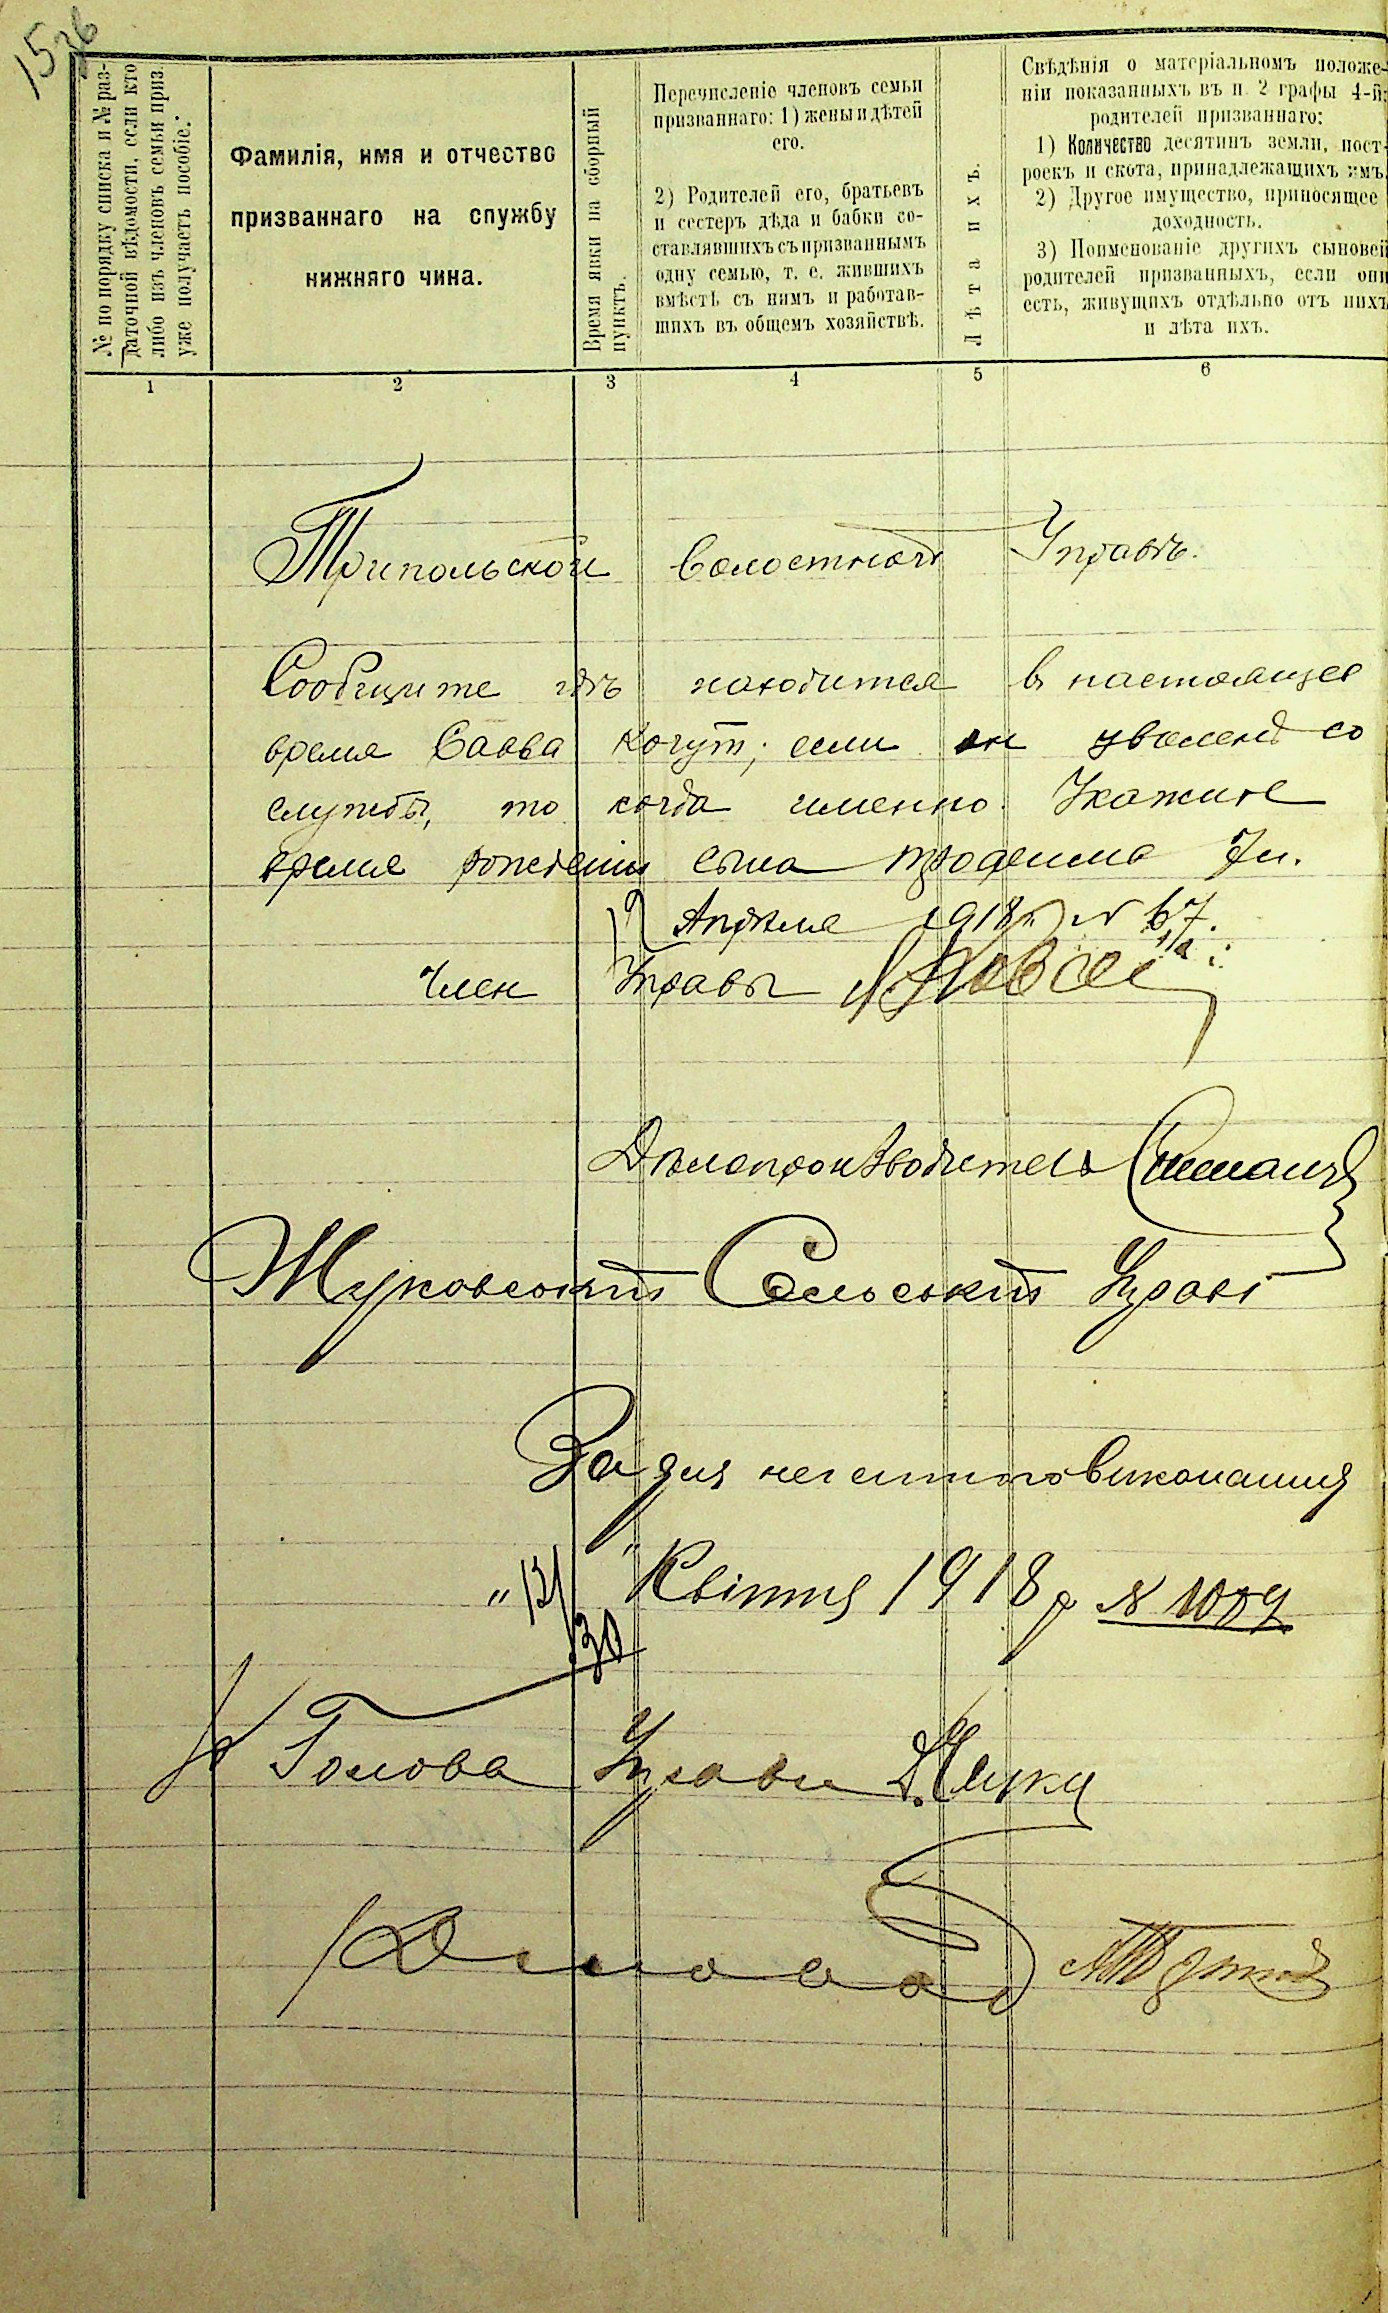 № по порядку списка и № раз-
даточной вѣдомости, если кто
либо изъ членовъ семьи приз.
уже получаетъ пособіе.
Фамилія, имя и отчество
призваннаго на службу
нижняго чина.
Время явки на сборный
пунктъ.
Перечисленіе членовъ семьи
призваннаго: 1) жены и дѣтей
его.
2) Родителей его, братьевъ
и сестеръ дѣда и бабки со-
ставлявшихъ съ призваннымъ
одну семью, т. е. жившихъ
вмѣстѣ съ нимъ и работав-
шихъ въ общемъ хозяйствѣ.
Лѣта ихъ.
Свѣдѣнія о матеріальномъ положе-
ніи показанныхъ въ п. 2 графы 4-й:
родителей призваннаго:
1) Количество десятинъ земли, пост-
роекъ и скота, принадлежащихъ имъ.
2) Другое имущество, приносящее
доходность.
3) Поименованіе другихъ сыновей
родителей призванныхъ, если они
есть, живущихъ отдѣльно отъ нихъ
и лѣта ихъ.
1 2 3 4 5 6
Трипольской Волостной Управѣ.
Сообщите гдѣ находится в настоящее
время Савва Когут; если он уволенъ со
службы, то когда именно. Укажите
время рождения сына Трофима
Апрѣля 1918 г. № 67.
Член Управы
Дѣлопроизводитель
Жуковській Сельській Управі
За для негайного виконання
"13/30" Квітня 1918 р №
Голова Управи